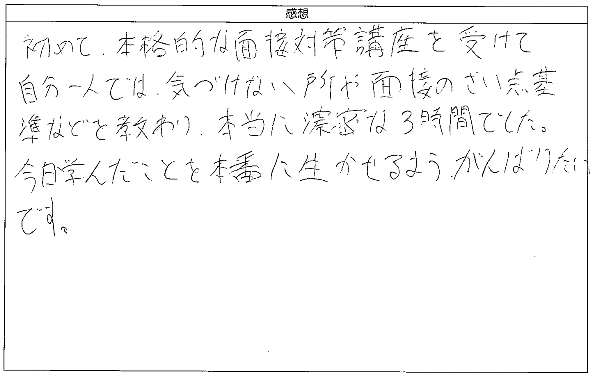 感想
初めて、本格的な面接対策講座を受けて
自分一人では、気づけない所や面接のさい点基
準などを教わり、本当に濃密な3時間でした。
今日学んだことを本番に生かせるよう、がんばりたい
です。